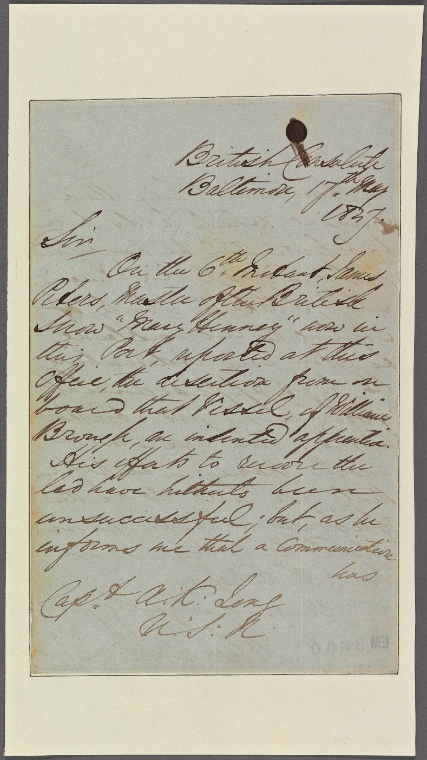 British Consulate
Baltimore, 17th May
18
Sir
On the 6th Instant, James
Peters, Master of the British
Snow "Mary Henney" now in
this Port, reported at this
Office, the desertion from on
board that Vessel, of William
Brough, an indented apprentice.
His efforts to recover the
lad have hitherto been
unsuccessful; but, as he
informs me that a Communication
has
Capt A. K. Long
U. S. N.